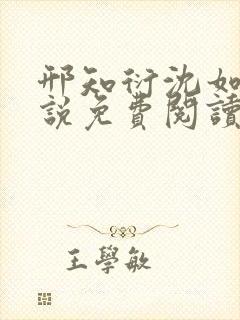 邢知衍沈如
說免費閱讀
王學敏